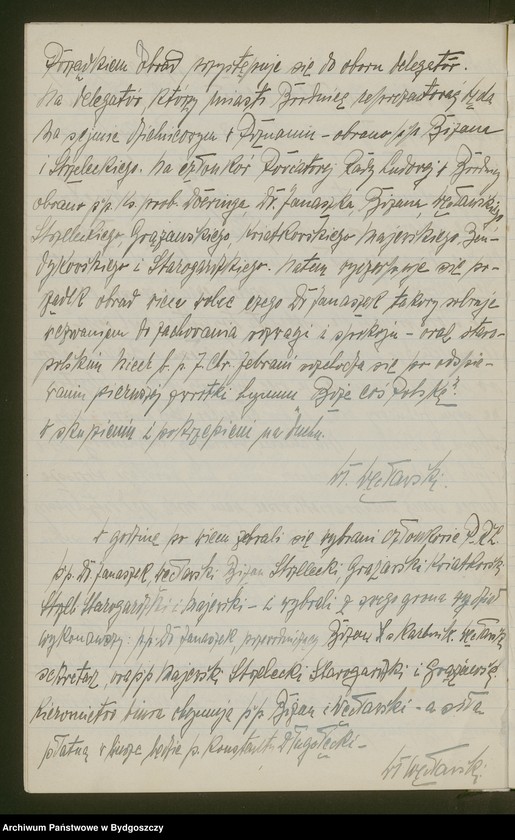 Porządkiem obrad przystępuje się do oboru delegatów.
Na delegatów, którzy miasto Brodnicę reprezentować będą
na sejmie dzielnicowym w Poznaniu – obrano pp. Bizana
i Strzeleckiego. Na członków Powiatowej Rady Ludowej w Brodnicy
obrano pp. ks. prob. Doeringa, Dr. Janaszka, Bizana, Węcławskiego,
Strzeleckiego, Grążawskiego, Kwiatkowskiego Majewskiego,
i Starogardzkiego. Na tem wyczerpuje się po-
rządek obrad wiecu wobec czego Dr Janaszek takowy solwuje
wezwaniem do zachowania rozwagi i spokoju – oraz staro-
polskim niech b. p. J. Chr. zebrani rozchodzą się po odśpie-
waniu pierwszej zwrotki hymnu "Boże coś Polskę".
w skupieniu i pokrzepieni na duchu.
Wł. Węcławski.
W godzinę po wiecu zebrali się wybrani członkowie P. R. L.
pp. Dr. Janaszek, Węcławski Bizan Strzelecki, Grążawski Kwiatkowski
Starogardzki i Majewski – i wybrali z swego grona wydział
wykonawczy: pp. Dr Janaszek, przewodniczący Bizan skarbnik. Węcławski
sekretarz, oraz pp Majewski Strzelecki Starogardzki i Grążawski.
Kierownictwo biura obejmują pp. Bizan i Węcławski – a siłą
płatną w biurze będzie p. Konstanty Długołęcki –
Wł Węcławski.
Archiwum Państwowe w Bydgoszczy